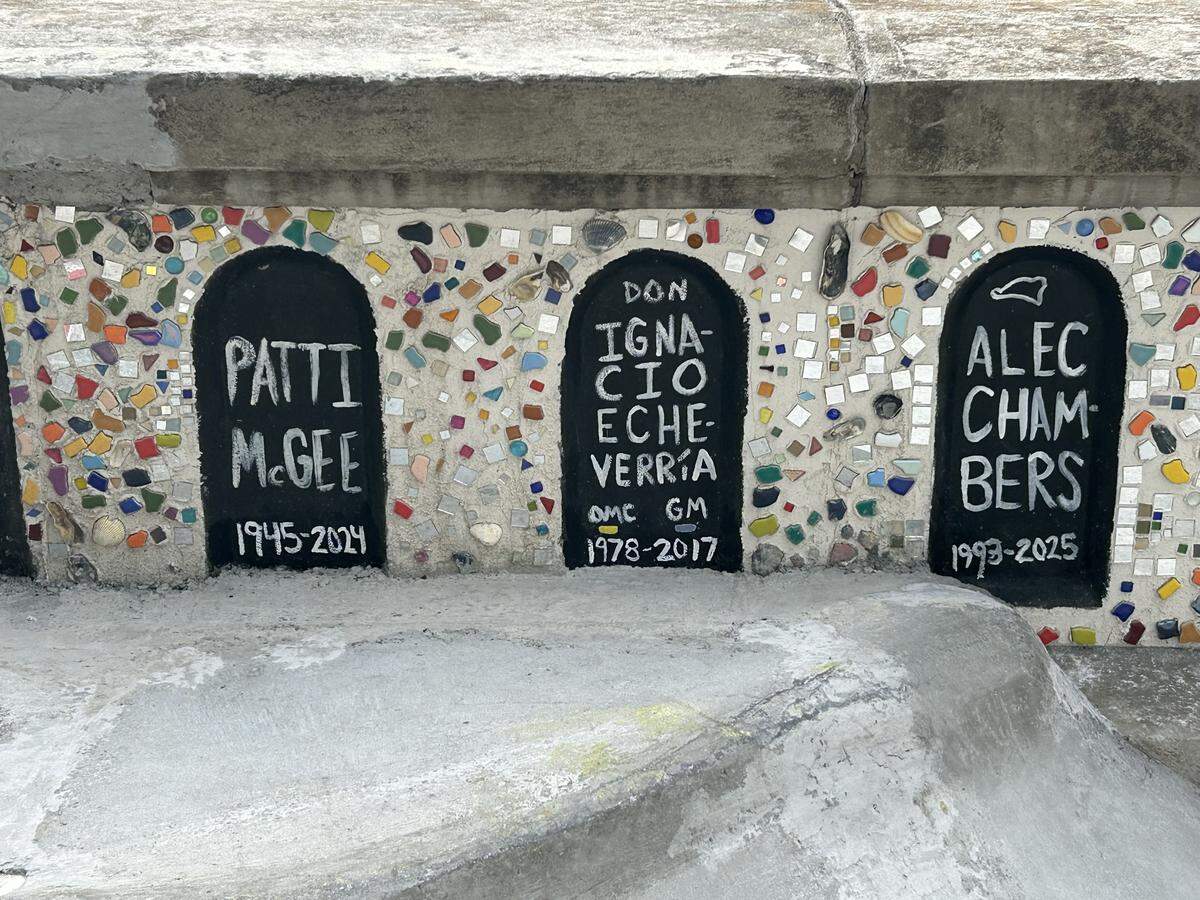 PATTI
McGEE
1945-2024
DON
IGNA-
CIO
ECHE-
VERRíA
OMC GM
1978-2017
ALEC
CHAM-
BERS
1993-2025